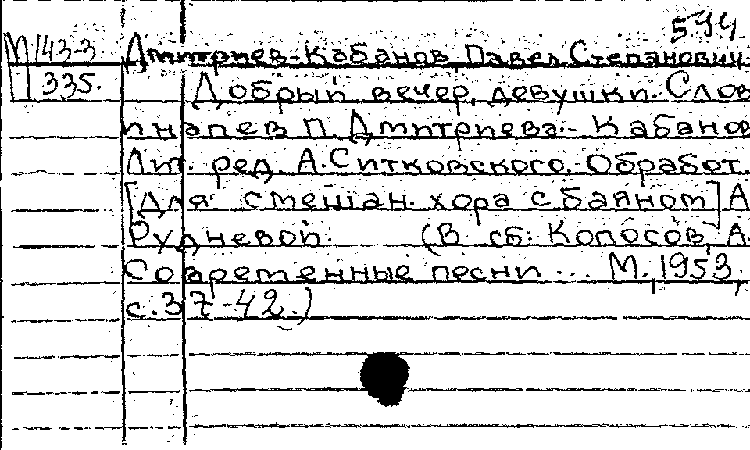 544
М 143-3 Дмитриев-Кабанов, Павел Степанович.
П 335. Добрый вечер, девушки. Слов
и напев П. Дмитриева-Кабанов
Лит. ред. А. Ситковского. Обработ.
[для смешан. хора с баяном] А
Рудневой. (В сб: Колосов, А.
Современные песни ... М., 1953,
с. 37-42.)